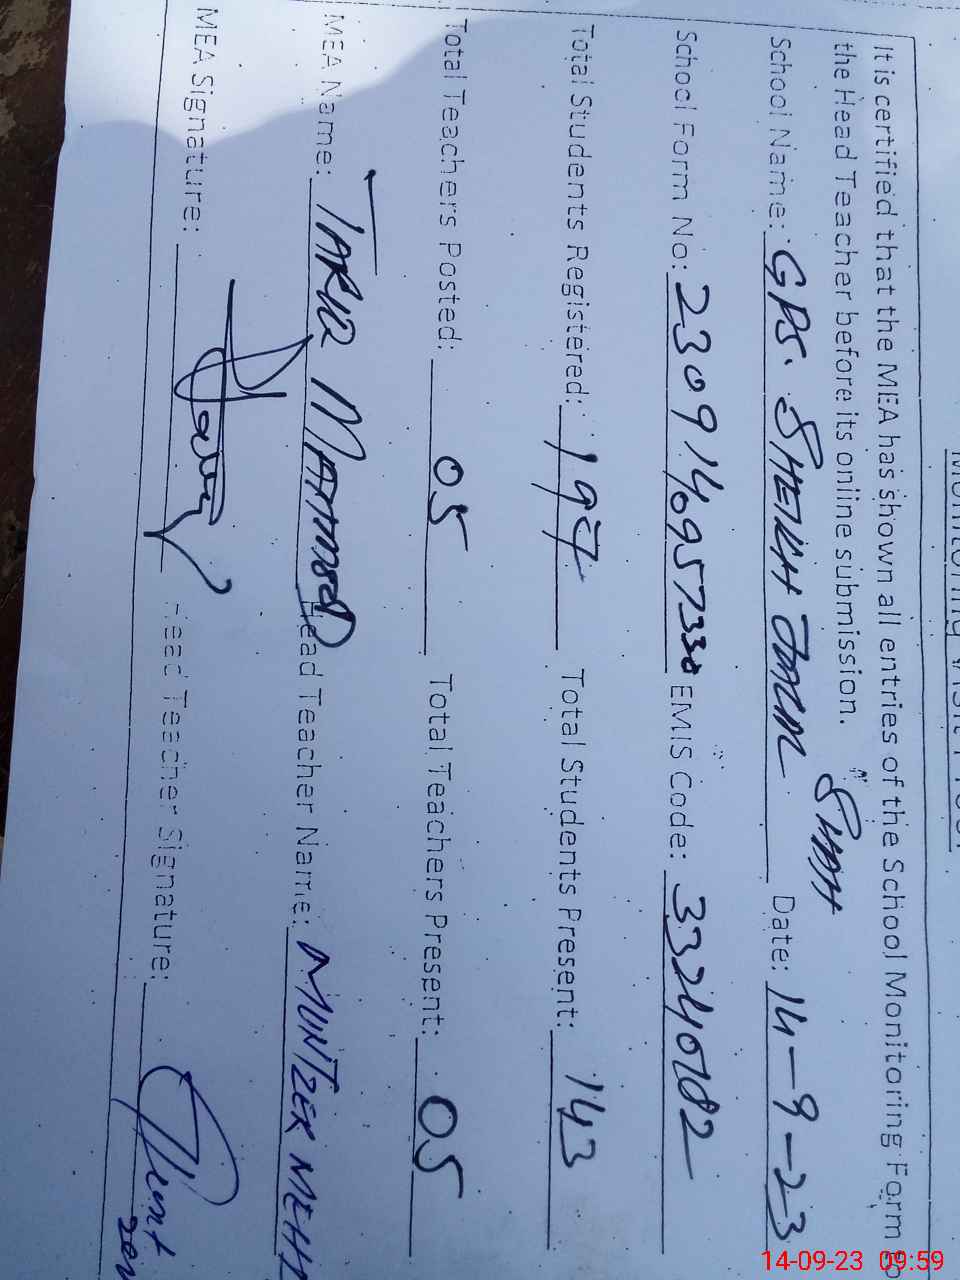 It is certified that the MEA has shown all entries of the School Monitoring Form
the Head Teacher before its online submission.
School Name: GPS. SHEIKH JALAL SHAH Date: 14-9-23
School Form No: 230914095733 EMIS Code: 33240182
Total Students Registered: 197 Total Students Present: 143
Total Teachers Posted: 05 Total Teachers Present: 05
MEA Name: TARIQ MAHMOOD Head Teacher Name: MUNTZER MEH
MEA Signature: Head Teacher Signature:
14-09-23 09:59